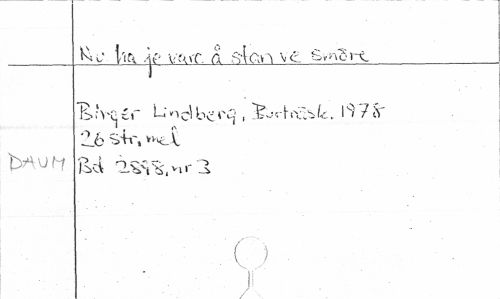 Nu ha je vare å stan ve smöre
Birger Lindberg, Burträsk, 1978
26 str, mel
DAUM Bd 2898, nr 3